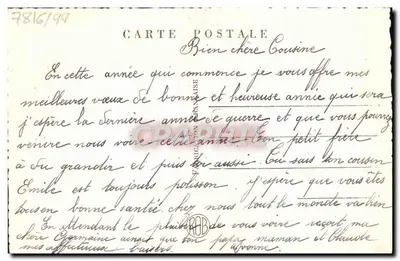 786/94
CARTE POSTALE
Bien chère Cousine
En cette année qui commence je vous offre mes
meilleures vœux de bonne et heureuse année qui sera
j'espère la dernière année de guerre et que vous pourrez
venire nous voire cette année. Ton petit frère
à du grandir et puis toi aussi. Tu sais ton cousin
Emile est toujours polisson. j'espère que vous êtes
tous en bonne santé. chez nous tout le monde va bien
En Attendant le plaisir de vous voire reçoit ma
chère Germaine ainsit que ton papa maman et Claude
mes affectueux baisers. Yvonne.